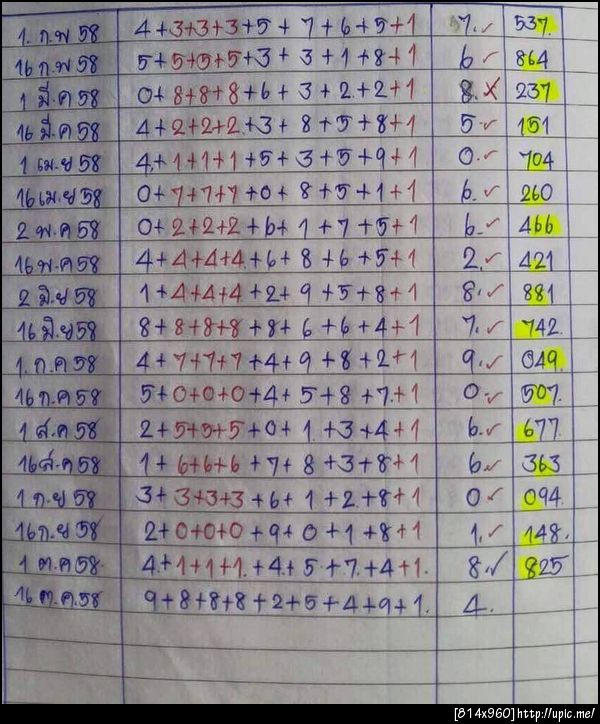 1. ก.พ 58 4+3+3+3+5+7+6+5+1 7. ✓ 537
16 ก.พ 58 5+5+5+5+3+3+1+8+1 6 ✓ 864
1 มี.ค 58 0+8+8+8+6+3+2+2+1 8. ✗ 237
16 มี.ค 58 4+2+2+2+3+8+5+8+1 5 ✓ 151
1 เม.ย 58 4+1+1+1+5+3+5+9+1 0. ✓ 704
16 เม.ย 58 0+7+7+7+0+8+5+1+1 6. ✓ 260
2 พ.ค 58 0+2+2+2+6+1+7+5+1 6. ✓ 466
16 พ.ค 58 4+4+4+4+6+8+6+5+1 2. ✓ 421
2 มิ.ย 58 1+4+4+4+2+9+5+8+1 8. ✓ 881
16 มิ.ย 58 8+8+8+8+8+6+6+4+1 7. ✓ 742.
1. ก.ค 58 4+7+7+7+4+9+8+2+1 9. ✓ 049.
16 ก.ค 58 5+0+0+0+4+5+8+7+1 0. ✓ 507.
1 ส.ค 58 2+5+5+5+0+1+3+4+1 6. ✓ 677.
16 ส.ค 58 1+6+6+6+7+8+3+8+1 6 ✓ 363
1 ก.ย 58 3+3+3+3+6+1+2+8+1 0 ✓ 094.
16 ก.ย 58 2+0+0+0+9+0+1+8+1 1. ✓ 148.
1 ต.ค 58. 4+1+1+1+4+5+7+4+1. 8 ✓ 825
16 ต.ค.58 9+8+8+8+2+5+4+9+1. 4.
[814x960]http://upic.me/